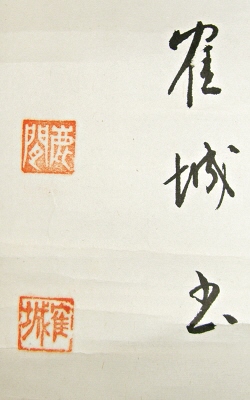 寉城書
寉城